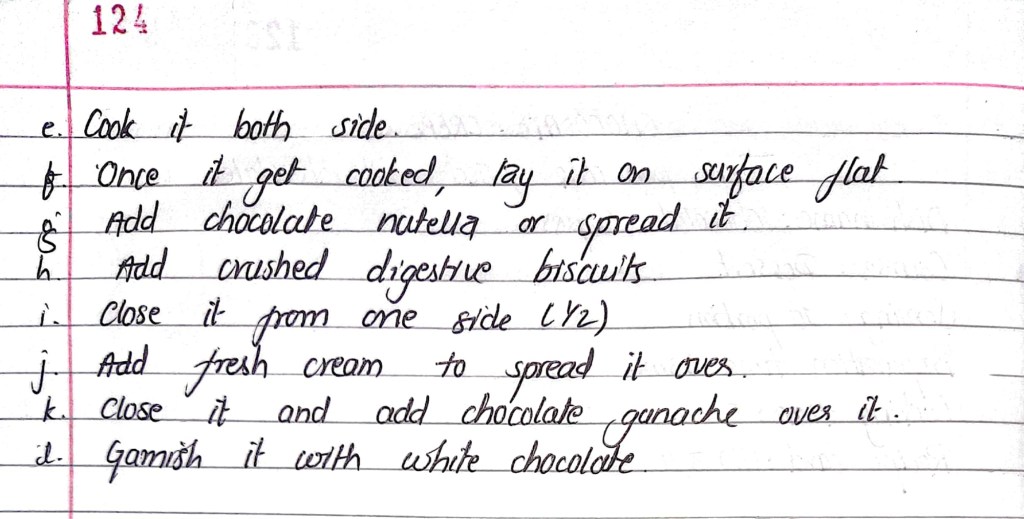 124
e. Cook it both side.
f. Once it get cooked, lay it on surface flat.
g. Add chocolate nutella or spread it.
h. Add crushed digestive biscuits
i. Close it from one side (1/2)
j. Add fresh cream to spread it over.
k. Close it and add chocolate ganache over it.
l. Garnish it with white chocolate.